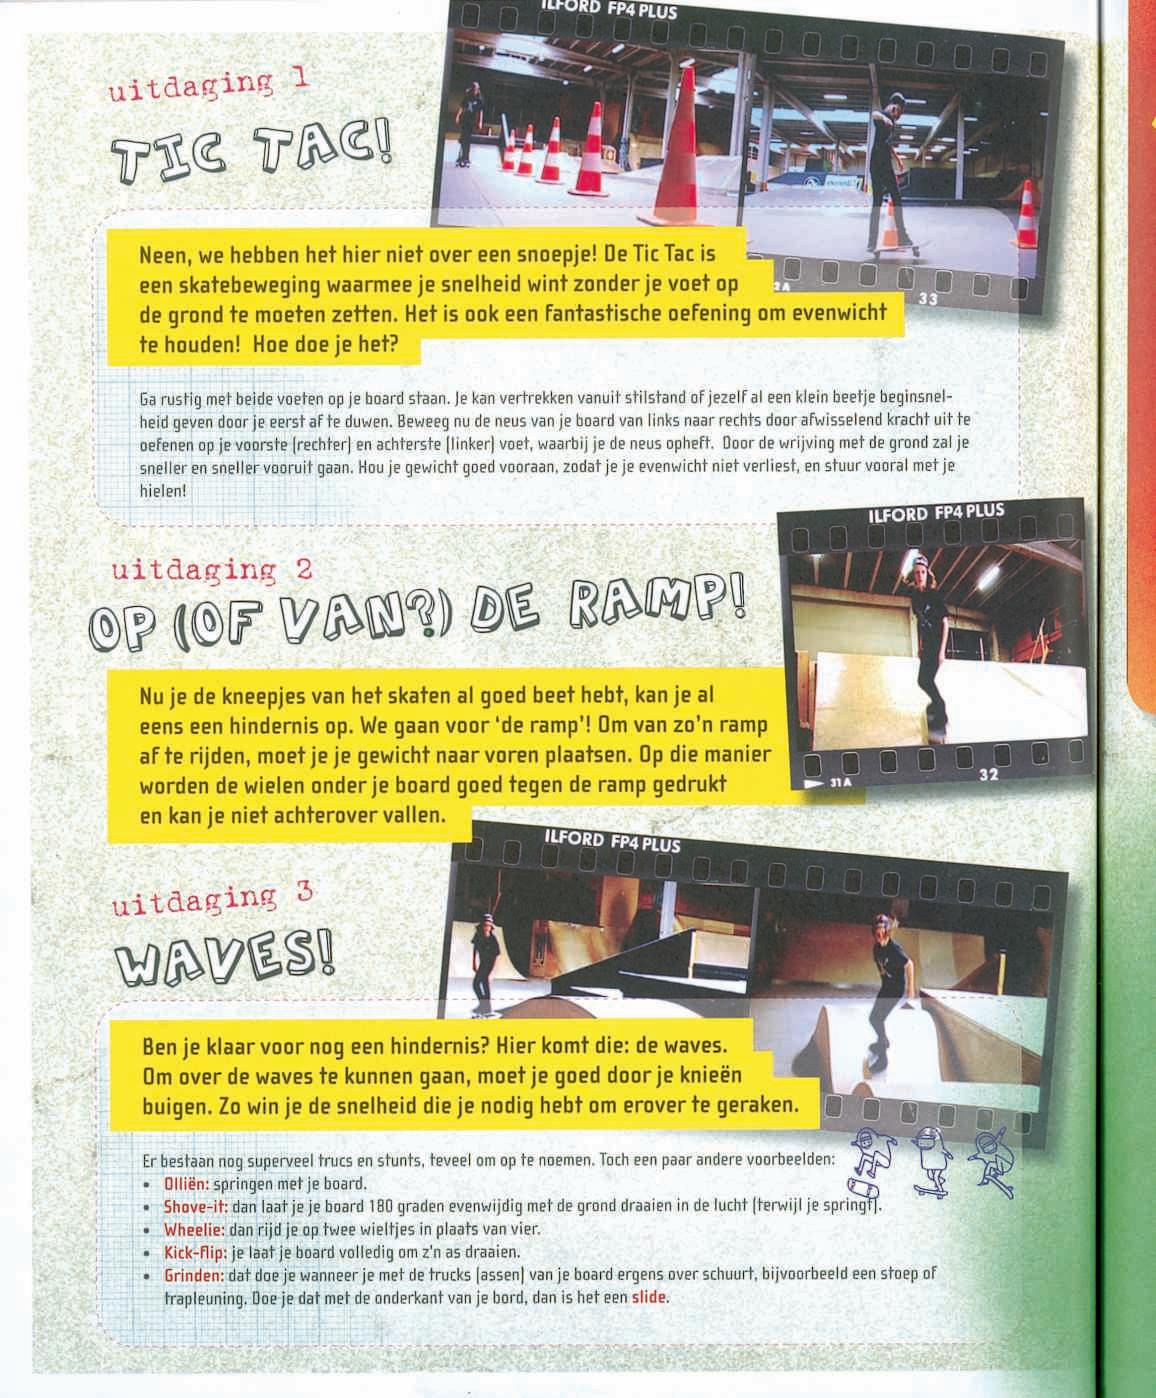 ILFORD FP4 PLUS
uitdaging 1
TIC TAC!
Neen, we hebben het hier niet over een snoepje! De Tic Tac is
een skatebeweging waarmee je snelheid wint zonder je voet op
de grond te moeten zetten. Het is ook een fantastische oefening om evenwicht
te houden! Hoe doe je het?
33
Ga rustig met beide voeten op je board staan. Je kan vertrekken vanuit stilstand of jezelf al een klein beetje beginsnel-
heid geven door je eerst af te duwen. Beweeg nu de neus van je board van links naar rechts door afwisselend kracht uit te
oefenen op je voorste (rechter) en achterste (linker) voet, waarbij je de neus opheft. Door de wrijving met de grond zal je
sneller en sneller vooruit gaan. Hou je gewicht goed vooraan, zodat je je evenwicht niet verliest, en stuur vooral met je
hielen!
ILFORD FP4 PLUS
uitdaging 2
OP (OF VAN?) DE RAMP!
Nu je de kneepjes van het skaten al goed beet hebt, kan je al
eens een hindernis op. We gaan voor ‘de ramp’! Om van zo’n ramp
af te rijden, moet je je gewicht naar voren plaatsen. Op die manier
worden de wielen onder je board goed tegen de ramp gedrukt
en kan je niet achterover vallen.
31A 32
ILFORD FP4 PLUS
uitdaging 3
WAVES!
Ben je klaar voor nog een hindernis? Hier komt die: de waves.
Om over de waves te kunnen gaan, moet je goed door je knieën
buigen. Zo win je de snelheid die je nodig hebt om erover te geraken.
Er bestaan nog superveel trucs en stunts, teveel om op te noemen. Toch een paar andere voorbeelden:
• Olliën: springen met je board.
• Shove-it: dan laat je je board 180 graden evenwijdig met de grond draaien in de lucht (terwijl je springt).
• Wheelie: dan rijd je op twee wieltjes in plaats van vier.
• Kick-flip: je laat je board volledig om z'n as draaien.
• Grinden: dat doe je wanneer je met de trucks (assen) van je board ergens over schuurt, bijvoorbeeld een stoep of
trapleuning. Doe je dat met de onderkant van je bord, dan is het een slide.